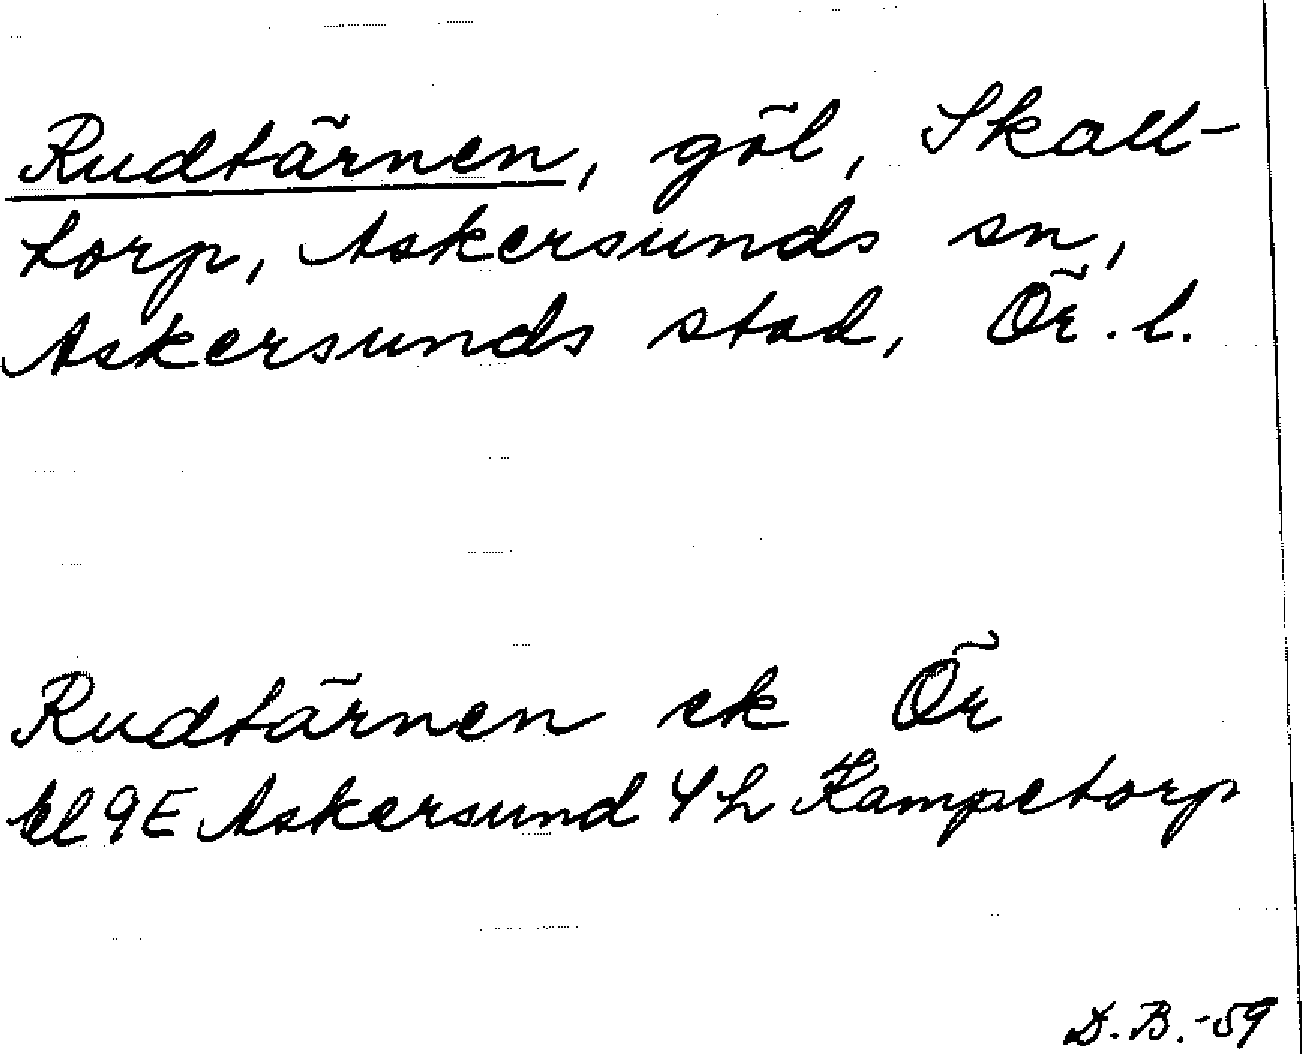 Rudtärnen, göl, Skall-
torp, Askersunds sn,
Askersunds stad, Ör. l.
Rudtärnen ek Ör
9E Askersund 4h Kampetorp
D.B.-59